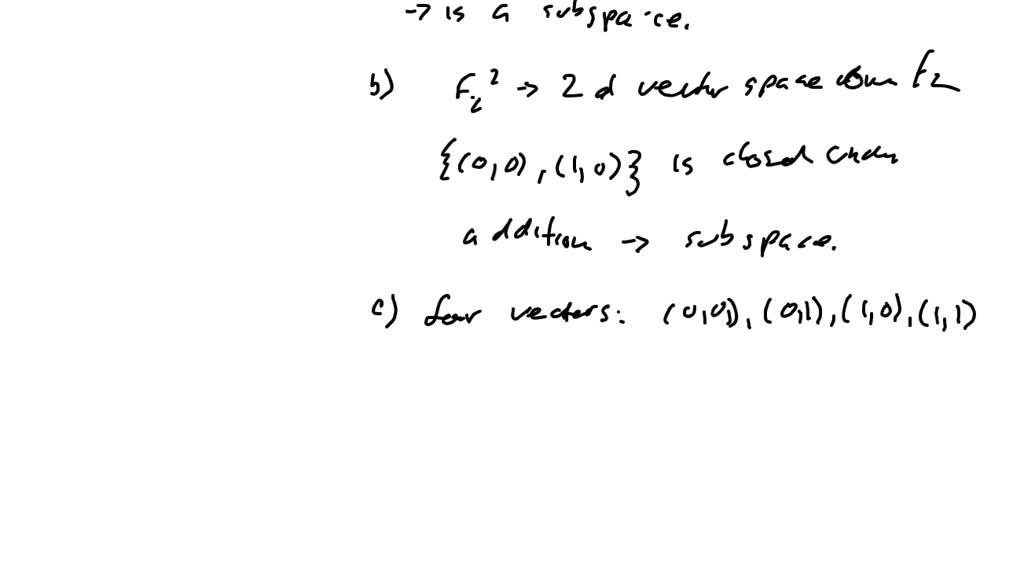 → is a subspace.
b) F₂² → 2d vector space over F₂
{(0,0), (1,0)} is closed under
addition → subspace.
c) four vectors: (0,0), (0,1), (1,0), (1,1)